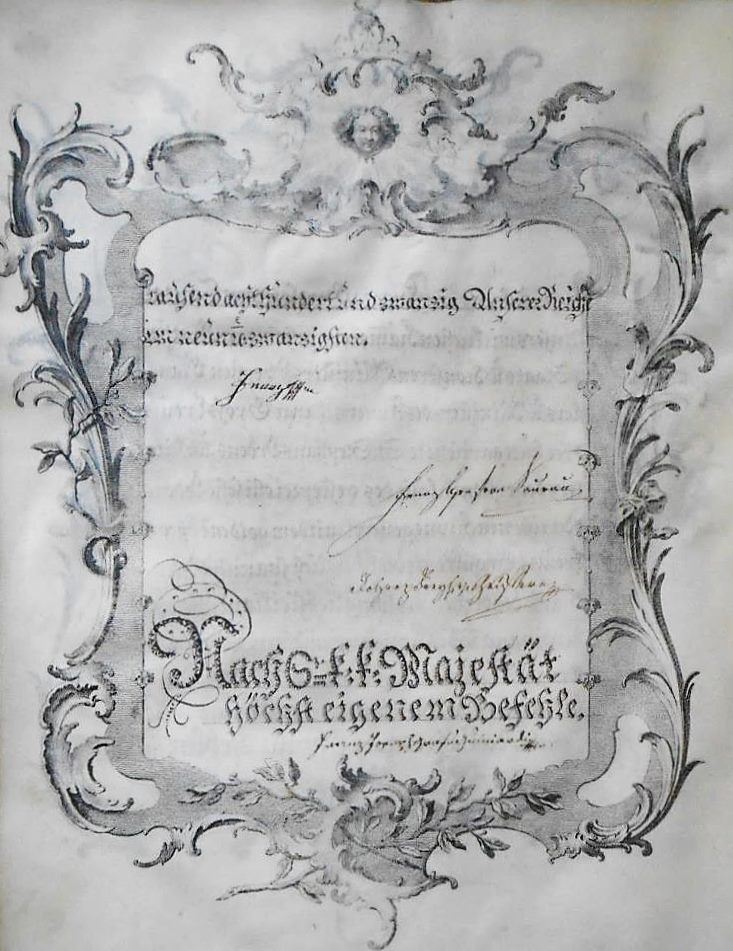 tausend acht hundert und zwanzig Unserer Reiche
im neun u zwanzigsten.
Franz
Franz Graf von Saurau
Nach Sr. k. k. Majestät
höchst eigenem Befehle.
Franz Joseph